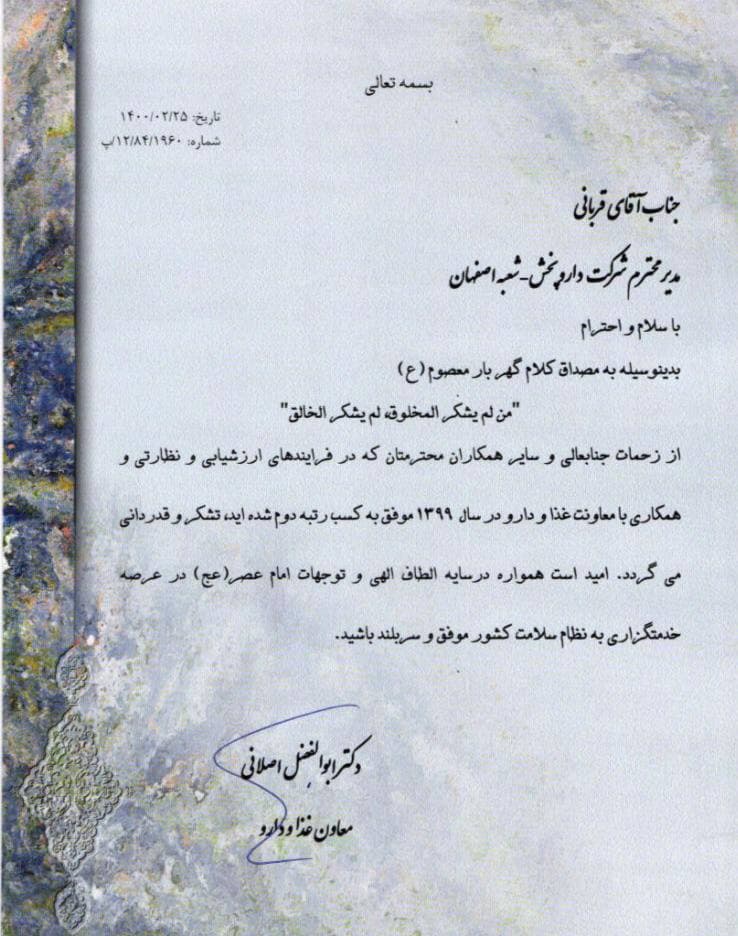 بسمه تعالی
تاریخ: ۱۴۰۰/۰۲/۲۵
شماره: ۱۲/۸۴/۱۹۶۰/پ
جناب آقای قربانی
مدیر محترم شرکت دارو پخش-شعبه اصفهان
با سلام و احترام
بدینوسیله به مصداق کلام گهر بار معصوم (ع)
"من لم یشکر المخلوق، لم یشکر الخالق"
از زحمات جنابعالی و سایر همکاران محترمتان که در فرایندهای ارزشیابی و نظارتی و
همکاری با معاونت غذا و دارو در سال ۱۳۹۹ موفق به کسب رتبه دوم شده اید، تشکر و قدردانی
می گردد. امید است همواره درسایه الطاف الهی و توجهات امام عصر(عج) در عرصه
خدمتگزاری به نظام سلامت کشور موفق و سربلند باشید.
دکتر ابوالفضل اصلانی
معاون غذا و دارو